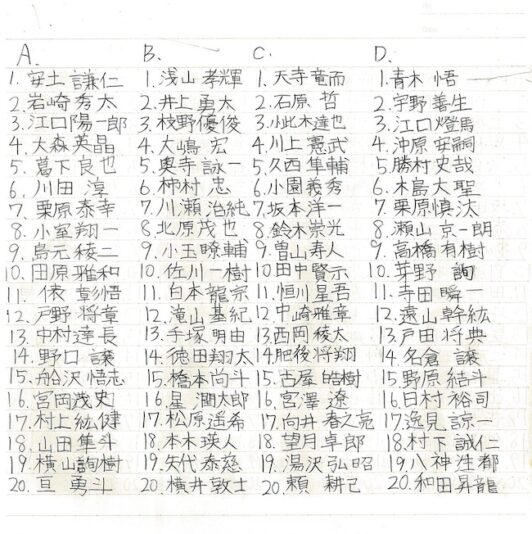 A.
1. 安土 謙仁
2. 岩崎 秀太
3. 江口陽一郎
4. 大森英晶
5. 葛下良也
6. 川田 淳
7. 栗原泰幸
8. 小室翔一
9. 島元稜二
10. 田原雅和
11. 俵 彰悟
12. 戸野将章
13. 中村達長
14. 野口 譲
15. 船沢悟志
16. 宮岡茂史
17. 村上紘健
18. 山田隼斗
19. 横山詢樹
20. 亘 勇斗
B.
1. 浅山孝輝
2. 井上勇大
3. 枝野優俊
4. 大嶋 宏
5. 奥寺詠一
6. 柿村 忠
7. 川瀬治純
8. 北原茂也
9. 小玉暸輔
10. 佐川一樹
11. 白本龍宗
12. 滝山基紀
13. 手塚明由
14. 徳田翔太
15. 橋本尚斗
16. 星 潤太郎
17. 松原遥希
18. 本木瑛人
19. 矢代泰慈
20. 横井敦士
C.
1. 天寺竜而
2. 石原 哲
3. 小此木達也
4. 川上憲武
5. 久西隼輔
6. 小園義秀
7. 坂本洋一
8. 鈴木崇光
9. 曽山寿人
10. 田中賢示
11. 恒川星吾
12. 中崎雅章
13. 西岡稜太
14. 肥後将翔
15. 古屋皓樹
16. 宮澤 遼
17. 向井春之亮
18. 望月卓郎
19. 湯沢弘昭
20. 頼 耕己
D.
1. 青木 悟一
2. 宇野善生
3. 江口燈馬
4. 沖原安嗣
5. 勝村史哉
6. 木島大聖
7. 栗原慎汰
8. 瀬山京一朗
9. 高橋有樹
10. 芽野 詢
11. 寺田瞬一
12. 遠山幹紘
13. 戸田将典
14. 名倉 譲
15. 野原結斗
16. 日村裕司
17. 逸見諒一
18. 村下誠仁
19. 八神
20. 和田昇龍